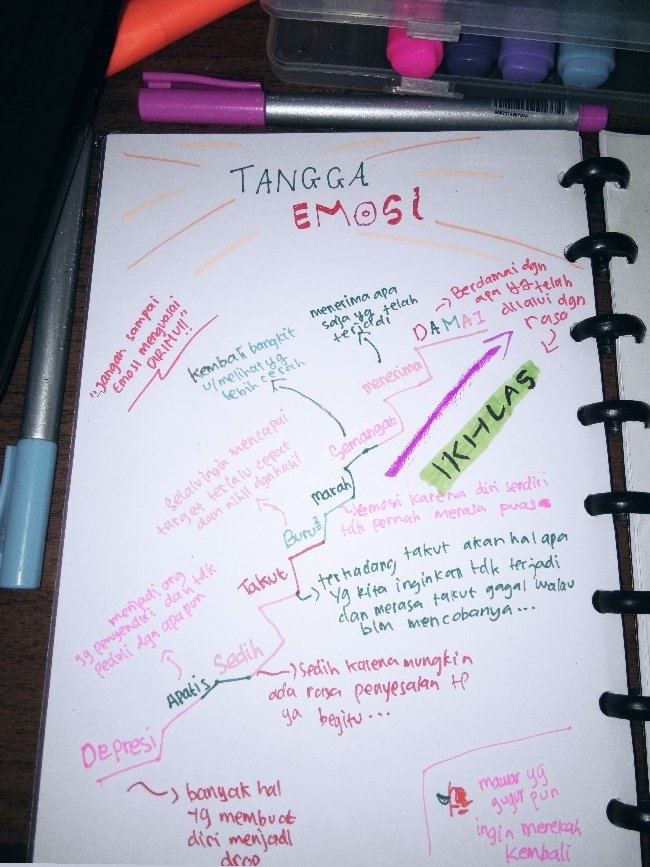 TANGGA
EMOSI
"Jangan sampai
Emosi menguasai
DIRIMU!!"
Berdamai dgn
apa yg telah
dilalui dgn
rasa
IKHLAS
DAMAI
menerima apa
saja yg telah
terjadi
menerima
Kembali bangkit
u/melihat yg
lebih cerah
Semangat
Marah
emosi karena diri sendiri
tdk pernah merasa puas
Selalu ingin mencapai
target terlalu cepat
dan nihil dgn hasil
Buru²
Takut
terhadang takut akan hal apa
yg kita inginkan tdk terjadi
dan merasa takut gagal walau
blm mencobanya...
Sedih
Sedih karena mungkin
ada rasa penyesalan tp
ya begitu...
menjadi org
yg penyendiri dan tdk
peduli dgn apa pun
Apatis
Depresi
banyak hal
yg membuat
diri menjadi
drop
mawar yg
gugur pun
ingin merekah
kembali